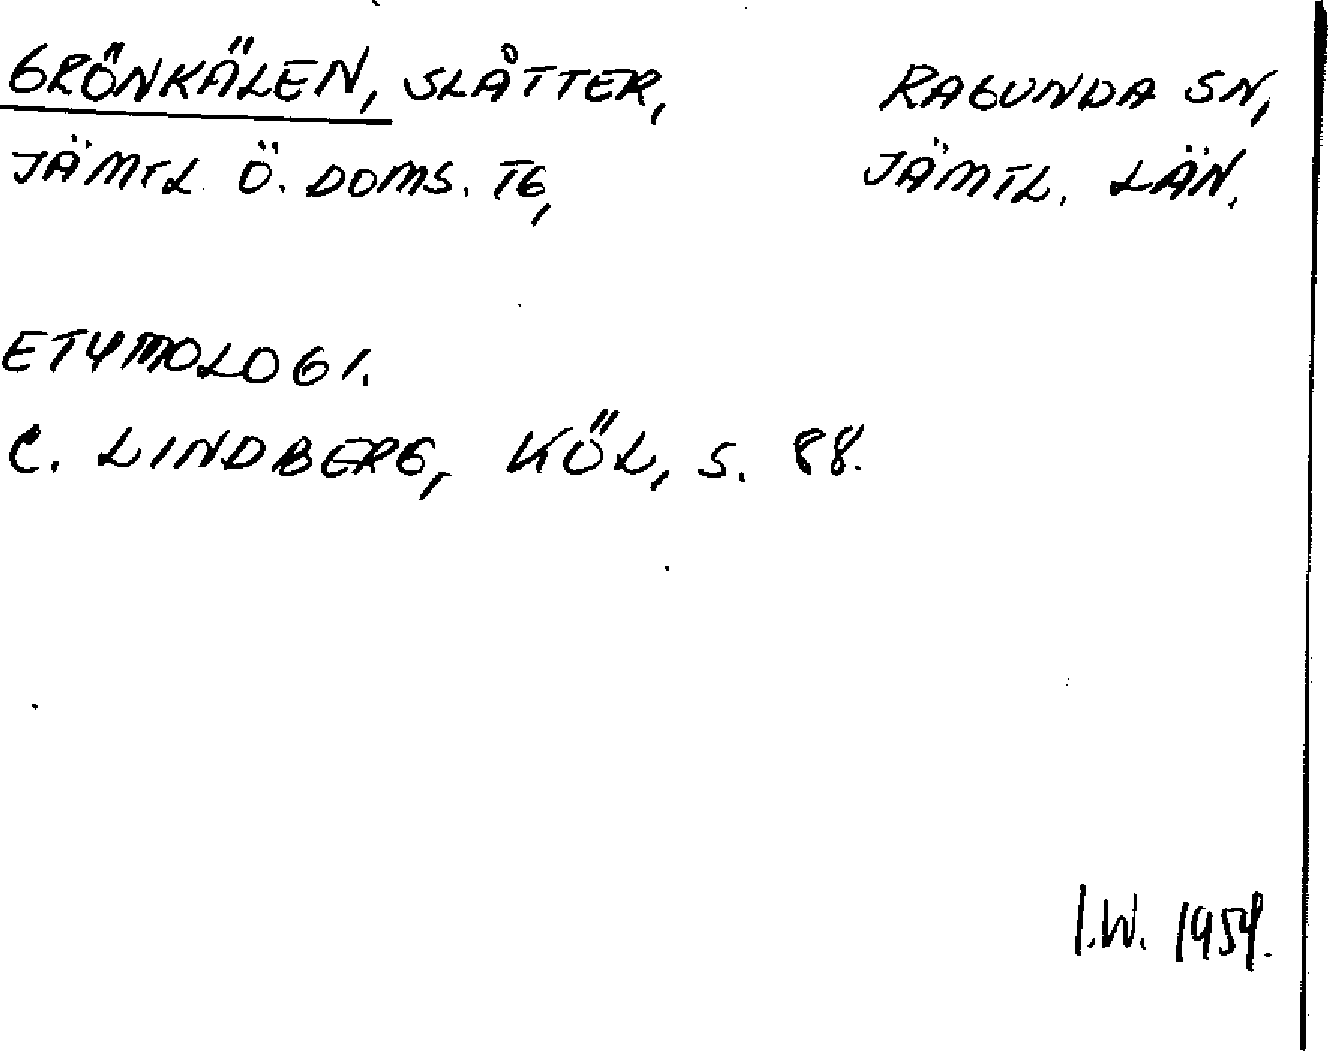 GRÖNKÄLEN, SLÅTTER, RAGUNDA SN,
JÄMTL Ö. DOMS. TG, JÄMTL. LÄN.
ETYMOLOGI.
C. LINDBERG, KÖL, S. 88.
I.W. 1959.